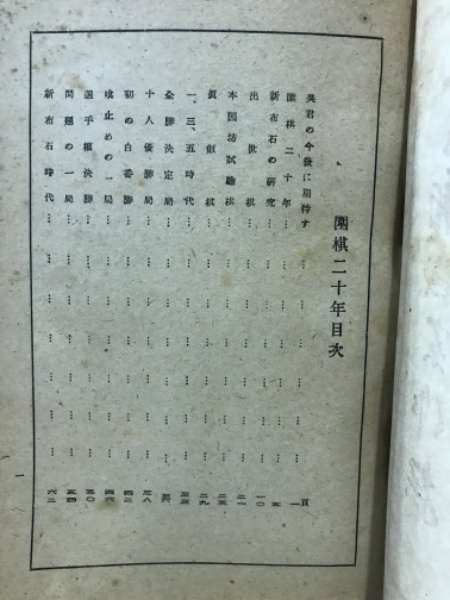 圍棋二十年目次
吳君の今後に期待す……………………一頁
圍棋二十年……………………五
新布石の研究……………………一〇
出世棋……………………二一
本因坊試驗棋……………………二五
眞劍棋……………………二九
一、三、五時代……………………三三
全勝決定局……………………三六
十人優勝局……………………三八
初の白番勝……………………四二
喰止めの一局……………………四六
選手權決勝……………………五〇
問題の一局……………………五四
新布石時代……………………六二
一